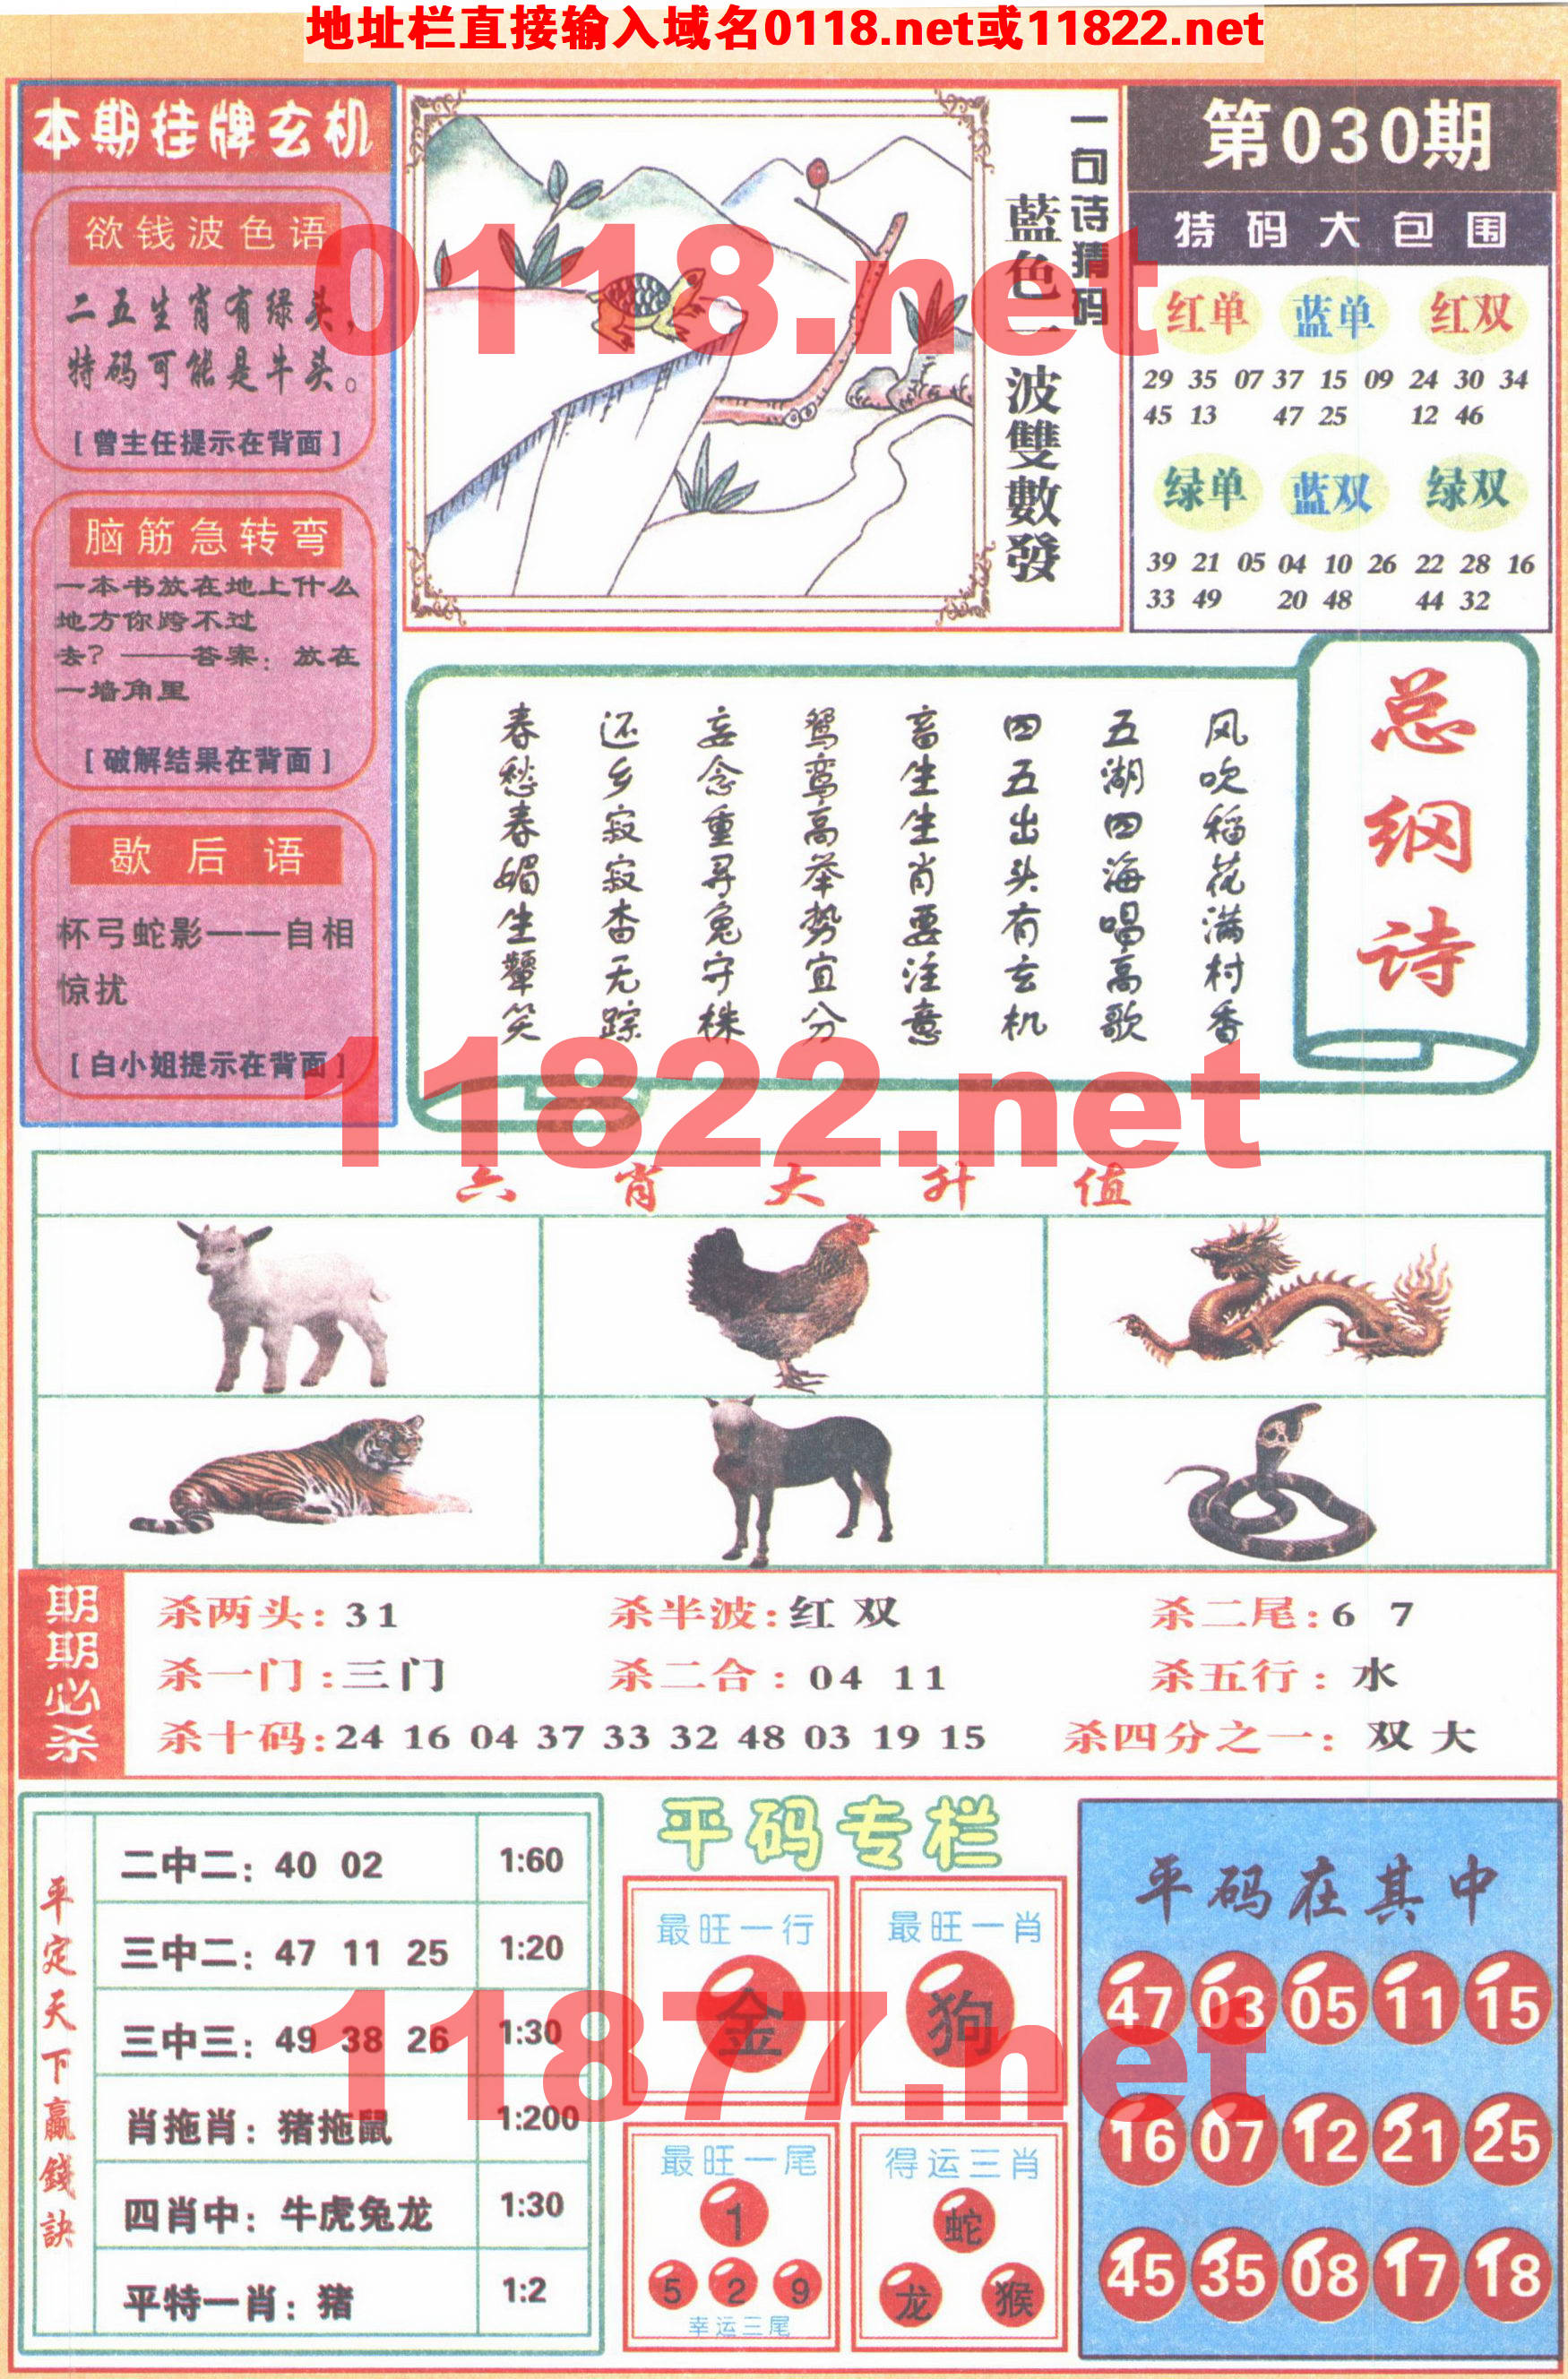 地址栏直接输入域名0118.net或11822.net
本期挂牌玄机
欲钱波色语
二五生肖有绿头，
特码可能是牛头。
[曾主任提示在背面]
脑筋急转弯
一本书放在地上什么
地方你跨不过
去？——答案：放在
一墙角里
[破解结果在背面]
歇后语
杯弓蛇影——自相
惊扰
[白小姐提示在背面]
一句诗猜码
藍色一波雙數發
0118.net
第030期
特码大包围
红单 蓝单 红双
29 35 07 37 15 09 24 30 34
45 13 47 25 12 46
绿单 蓝双 绿双
39 21 05 04 10 26 22 28 16
33 49 20 48 44 32
总纲诗
风吹稻花满村香
五湖四海唱高歌
四五出头有玄机
畜生生肖要注意
鸳鸾高举势宜分
妄念重寻兔守株
还乡寂寂杳无踪
春愁春媚生颦笑
11822.net
六肖大升值
期期必杀
杀两头：31 杀半波：红双 杀二尾：6 7
杀一门：三门 杀二合：04 11 杀五行：水
杀十码：24 16 04 37 33 32 48 03 19 15 杀四分之一：双大
平定天下赢錢訣
二中二：40 02 1:60
三中二：47 11 25 1:20
三中三：49 38 26 1:30
肖拖肖：猪拖鼠 1:200
四肖中：牛虎兔龙 1:30
平特一肖：猪 1:2
平码专栏
最旺一行
金
最旺一肖
狗
最旺一尾
1
5 2 9
幸运三尾
得运三肖
蛇
龙 猴
11877.net
平码在其中
47 03 05 11 15
16 07 12 21 25
45 35 08 17 18